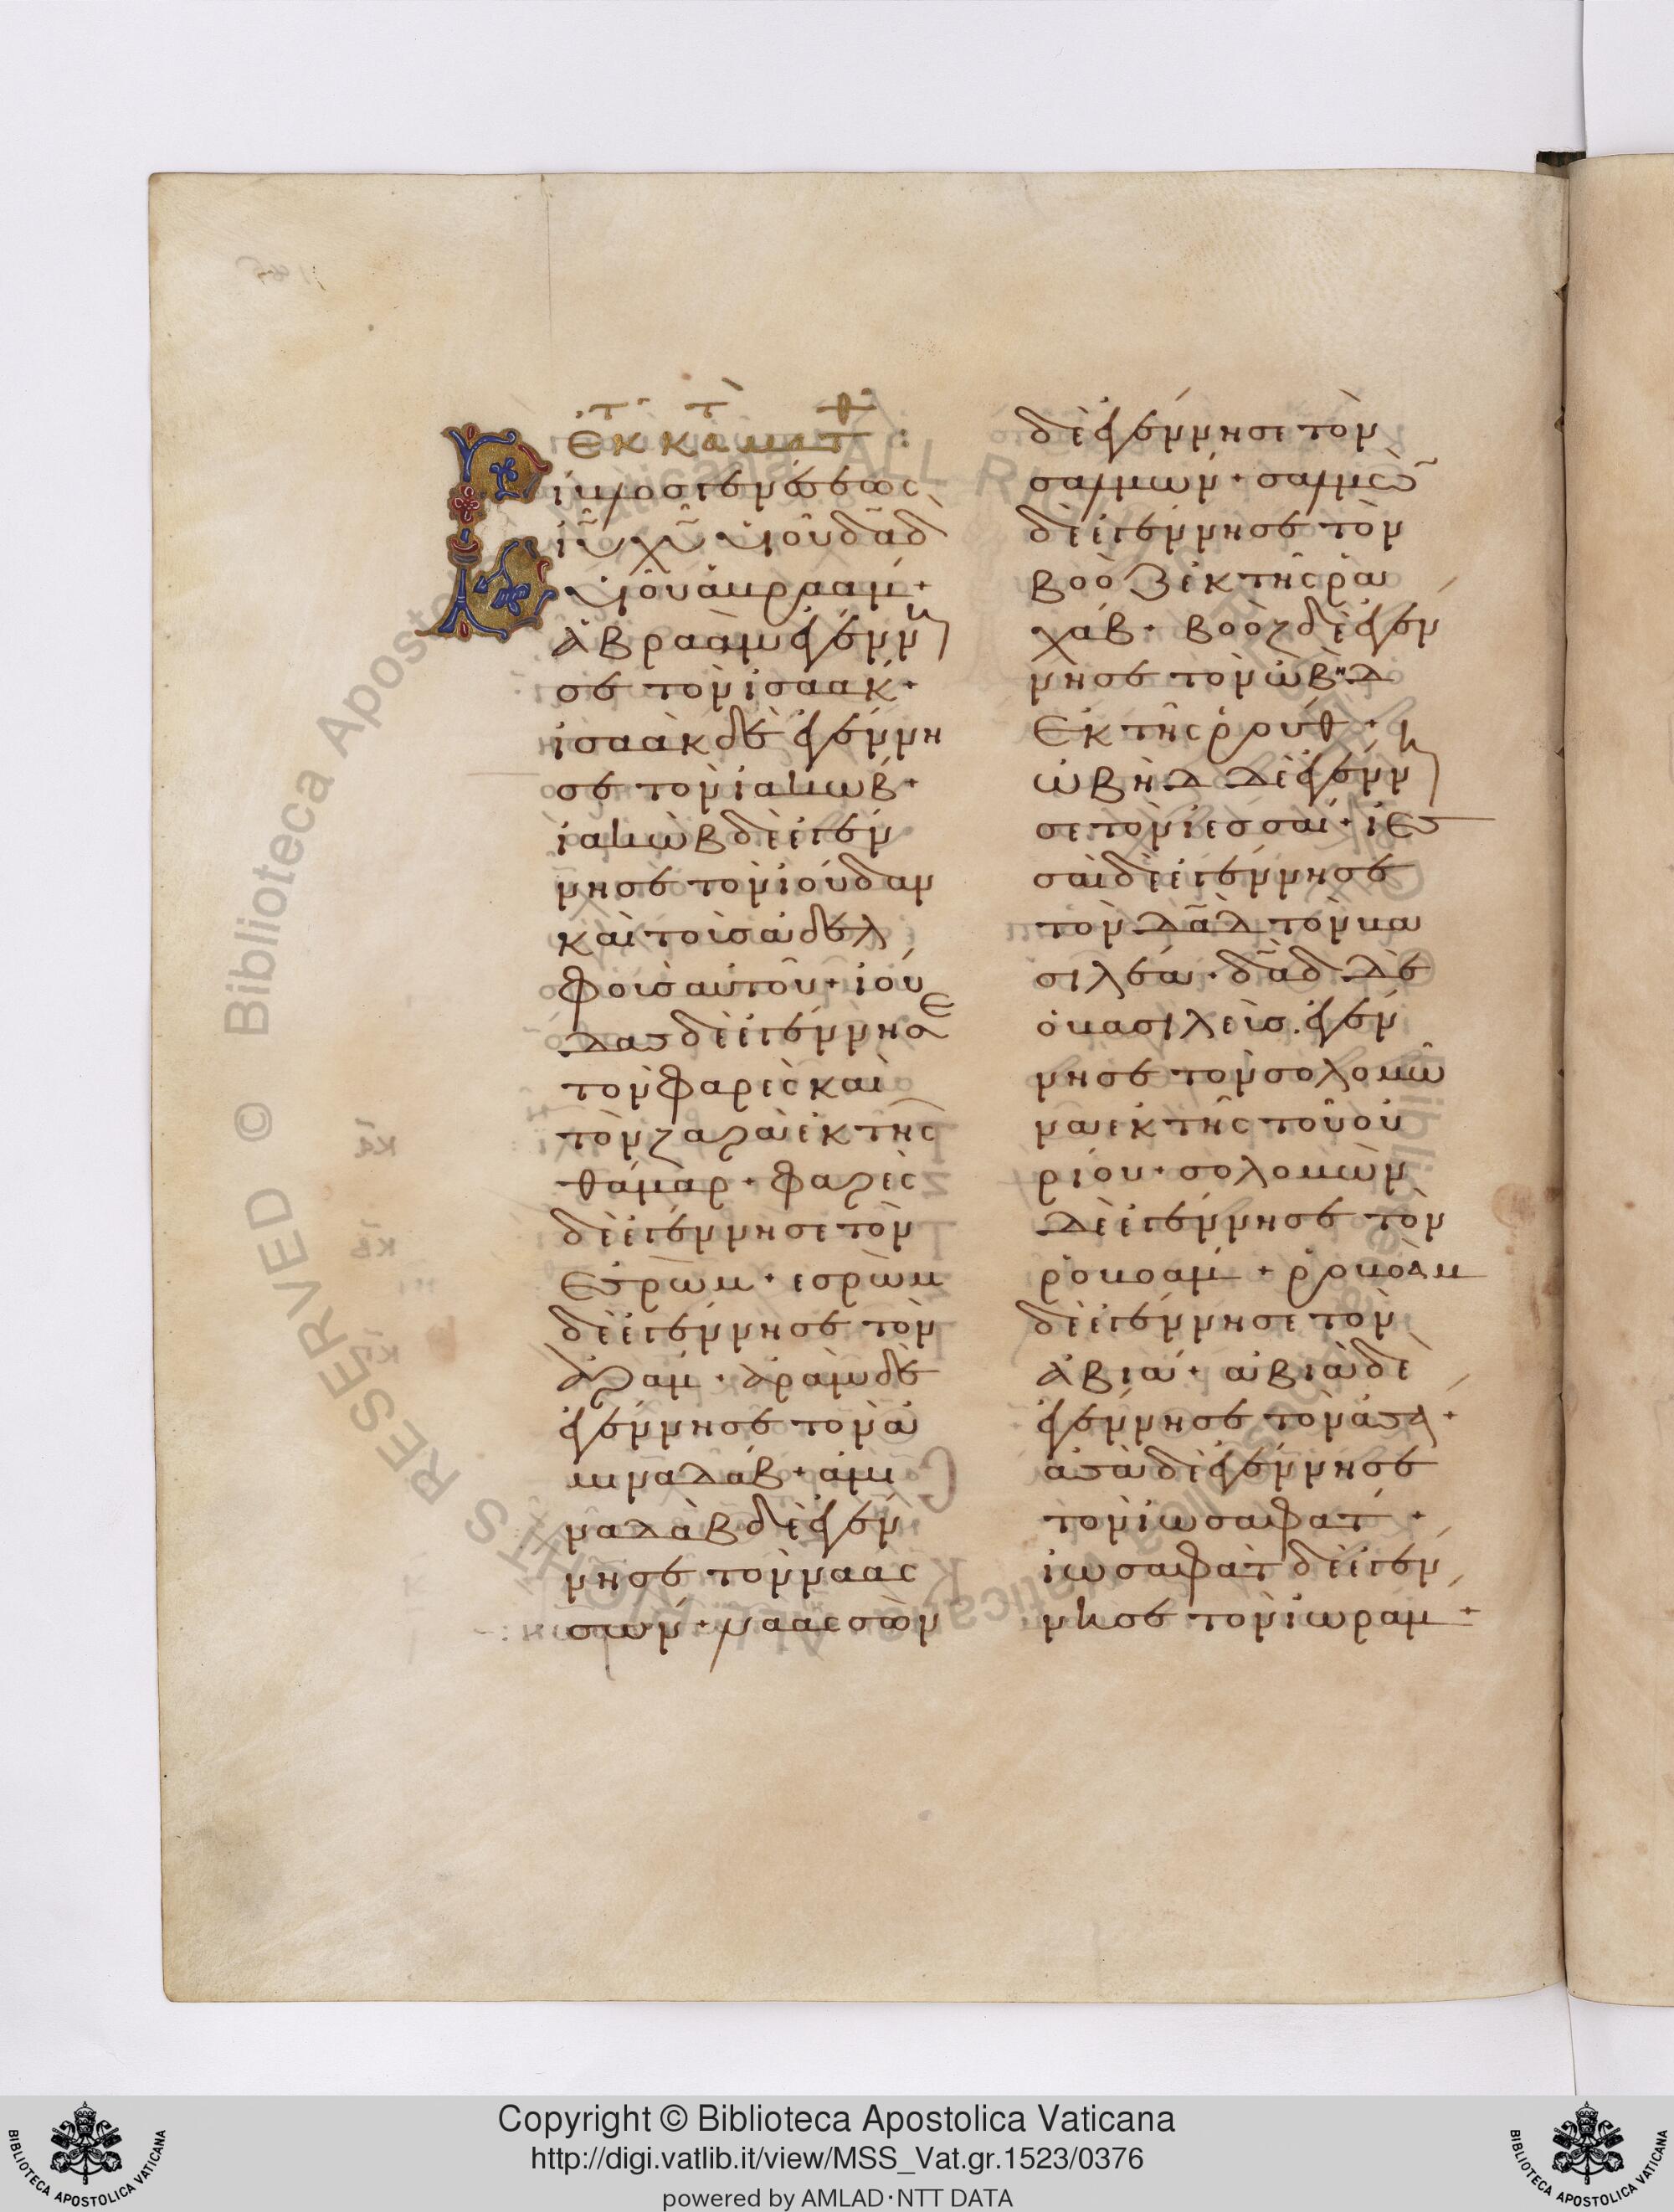 ἐκ τοῦ κατὰ ματθ :
Βίβλος γενέσεως
ἰῦ χῦ υἱοῦ δαδ
υἱοῦ ἀβραάμ +
ἀβραὰμ ἐγέννη
σε τὸν ἰσαάκ +
ἰσαὰκ δὲ ἐγέννη
σε τὸν ἰακώβ +
ἰακὼβ δὲ ἐγέν
νησε τὸν ἰούδαν
καὶ τοὺς ἀδελ
φοὺς αὐτοῦ + ἰού
δας δὲ ἐγέννησε
τὸν φαρὲς καὶ
τὸν ζαρὰ ἐκ τῆς
θάμαρ + φαρὲς
δὲ ἐγέννησε τὸν
ἐσρώμ + ἐσρὼμ
δὲ ἐγέννησε τὸν
ἀράμ + ἀρὰμ δὲ
ἐγέννησε τὸν ἀ
μιναδάβ + ἀμι
ναδὰβ δὲ ἐγέν
νησε τὸν ναασ
σών + ναασσὼν
δὲ ἐγέννησε τὸν
σαλμών + σαλμὼ
δὲ ἐγέννησε τὸν
βοὸζ ἐκ τῆς ῥα
χάβ + βοὸζ δὲ ἐγέν
νησε τὸν ὠβὴδ
ἐκ τῆς ῥούθ +
ὠβὴδ δὲ ἐγέννη
σε τὸν ἰεσσαί + ἰεσ
σαὶ δὲ ἐγέννησε
τὸν δαδ τὸν βα
σιλέα + δαδ δὲ
ὁ βασιλεὺς ἐγέν
νησε τὸν σολομῶ
να ἐκ τῆς τοῦ οὐ
ρίου + σολομὼν
δὲ ἐγέννησε τὸν
ῥοβοάμ + ῥοβοὰμ
δὲ ἐγέννησε τὸν
ἀβιά + ἀβιὰ δὲ
ἐγέννησε τὸν ἀσά +
ἀσὰ δὲ ἐγέννησε
τὸν ἰωσαφάτ +
ἰωσαφὰτ δὲ ἐγέν
νησε τὸν ἰωράμ +
© Biblioteca Apostolica Vaticana ALL RIGHTS RESERVED
Copyright © Biblioteca Apostolica Vaticana
http://digi.vatlib.it/view/MSS_Vat.gr.1523/0376
powered by AMLAD·NTT DATA
BIBLIOTECA APOSTOLICA VATICANA
BIBLIOTECA APOSTOLICA VATICANA